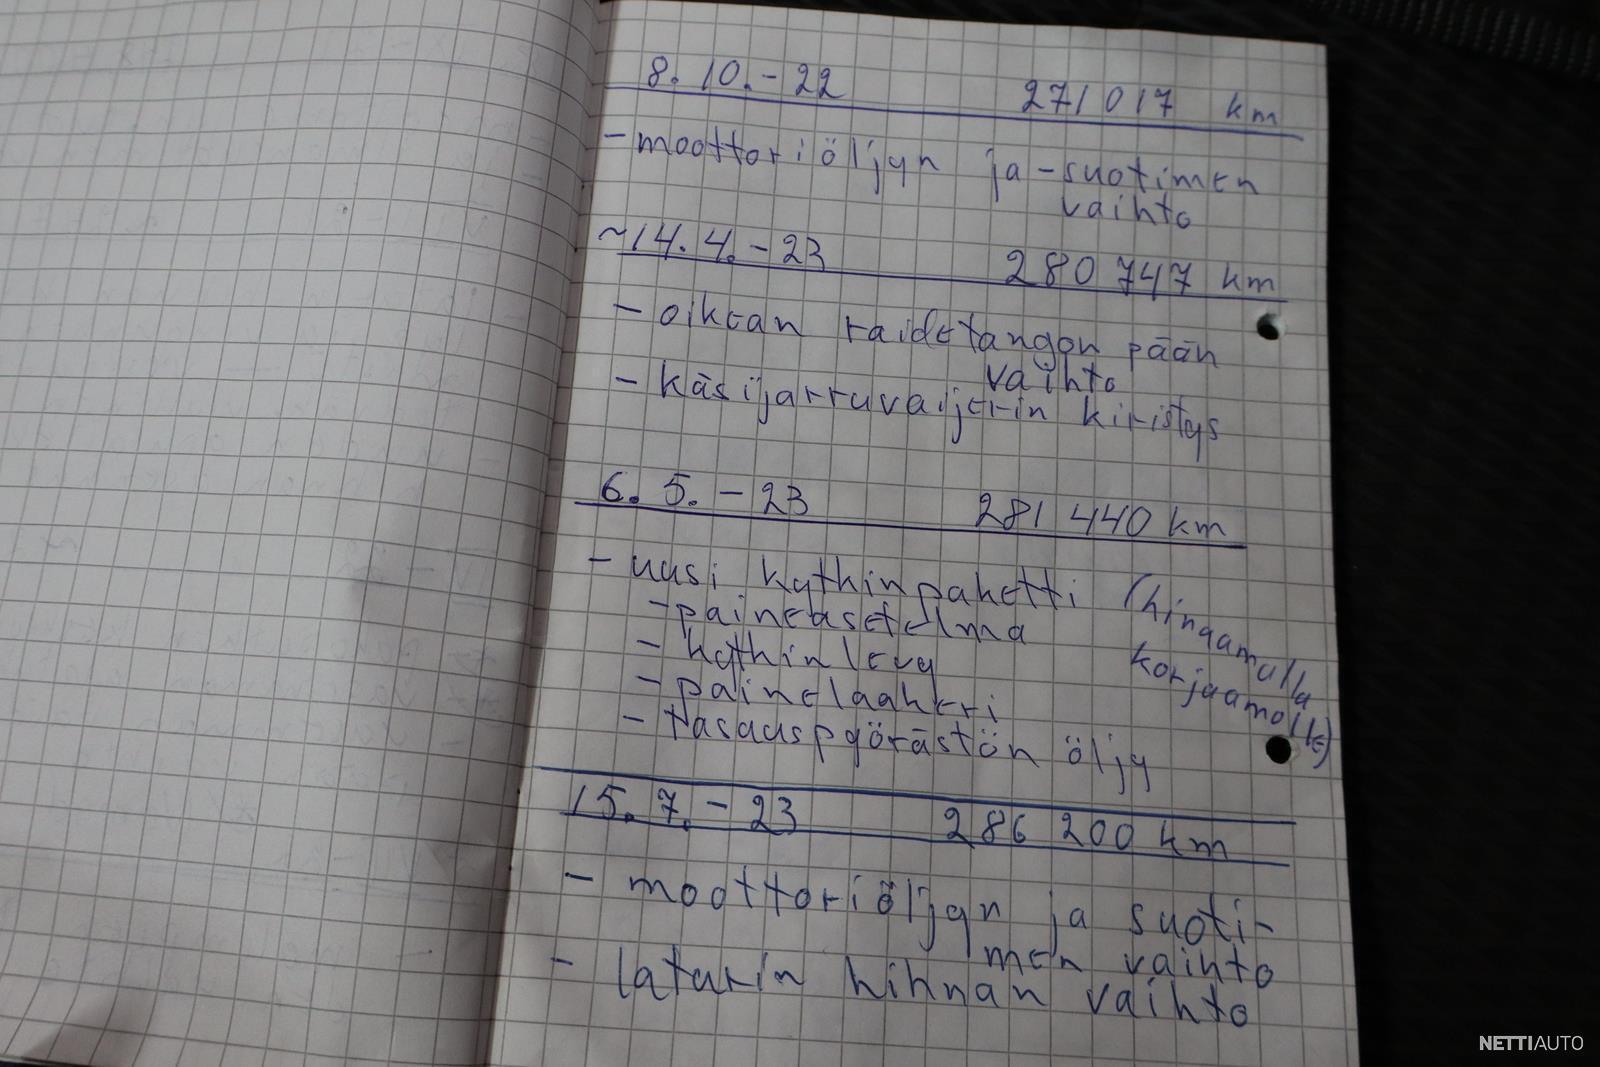 8. 10. - 22 271 017 km
- moottoriöljyn ja -suotimen
vaihto
~14. 4. - 23 280 747 km
- oikean raidetangon pään
vaihto
- käsijarruvaijerin kiristys
6. 5. - 23 281 440 km
- uusi kytkinpaketti (hinaamalla
korjaamolle)
- paineasetelma
- kytkinlevy
- painelaakeri
- tasauspyörästön öljy
15. 7. - 23 286 200 km
- moottoriöljyn ja suoti-
men vaihto
- laturin hihnan vaihto
NETTIAUTO